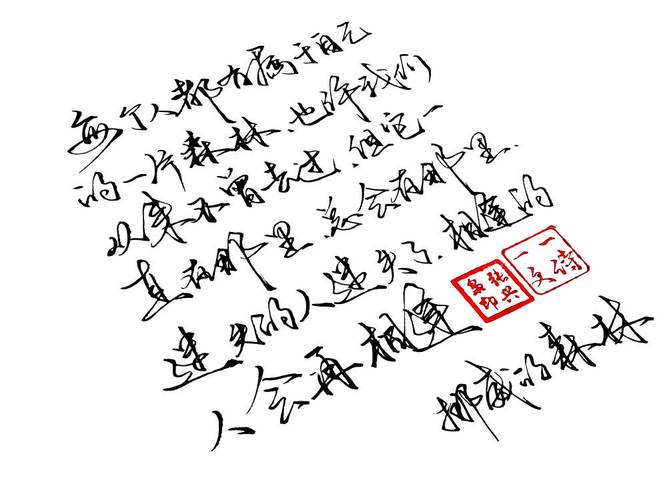 每个人都有属于自己
的一片森林、也许我们
从来不曾去过、但它一
直在那里、总会在那里.
迷失的人迷失了、相逢的
人会再相逢
挪威的森林